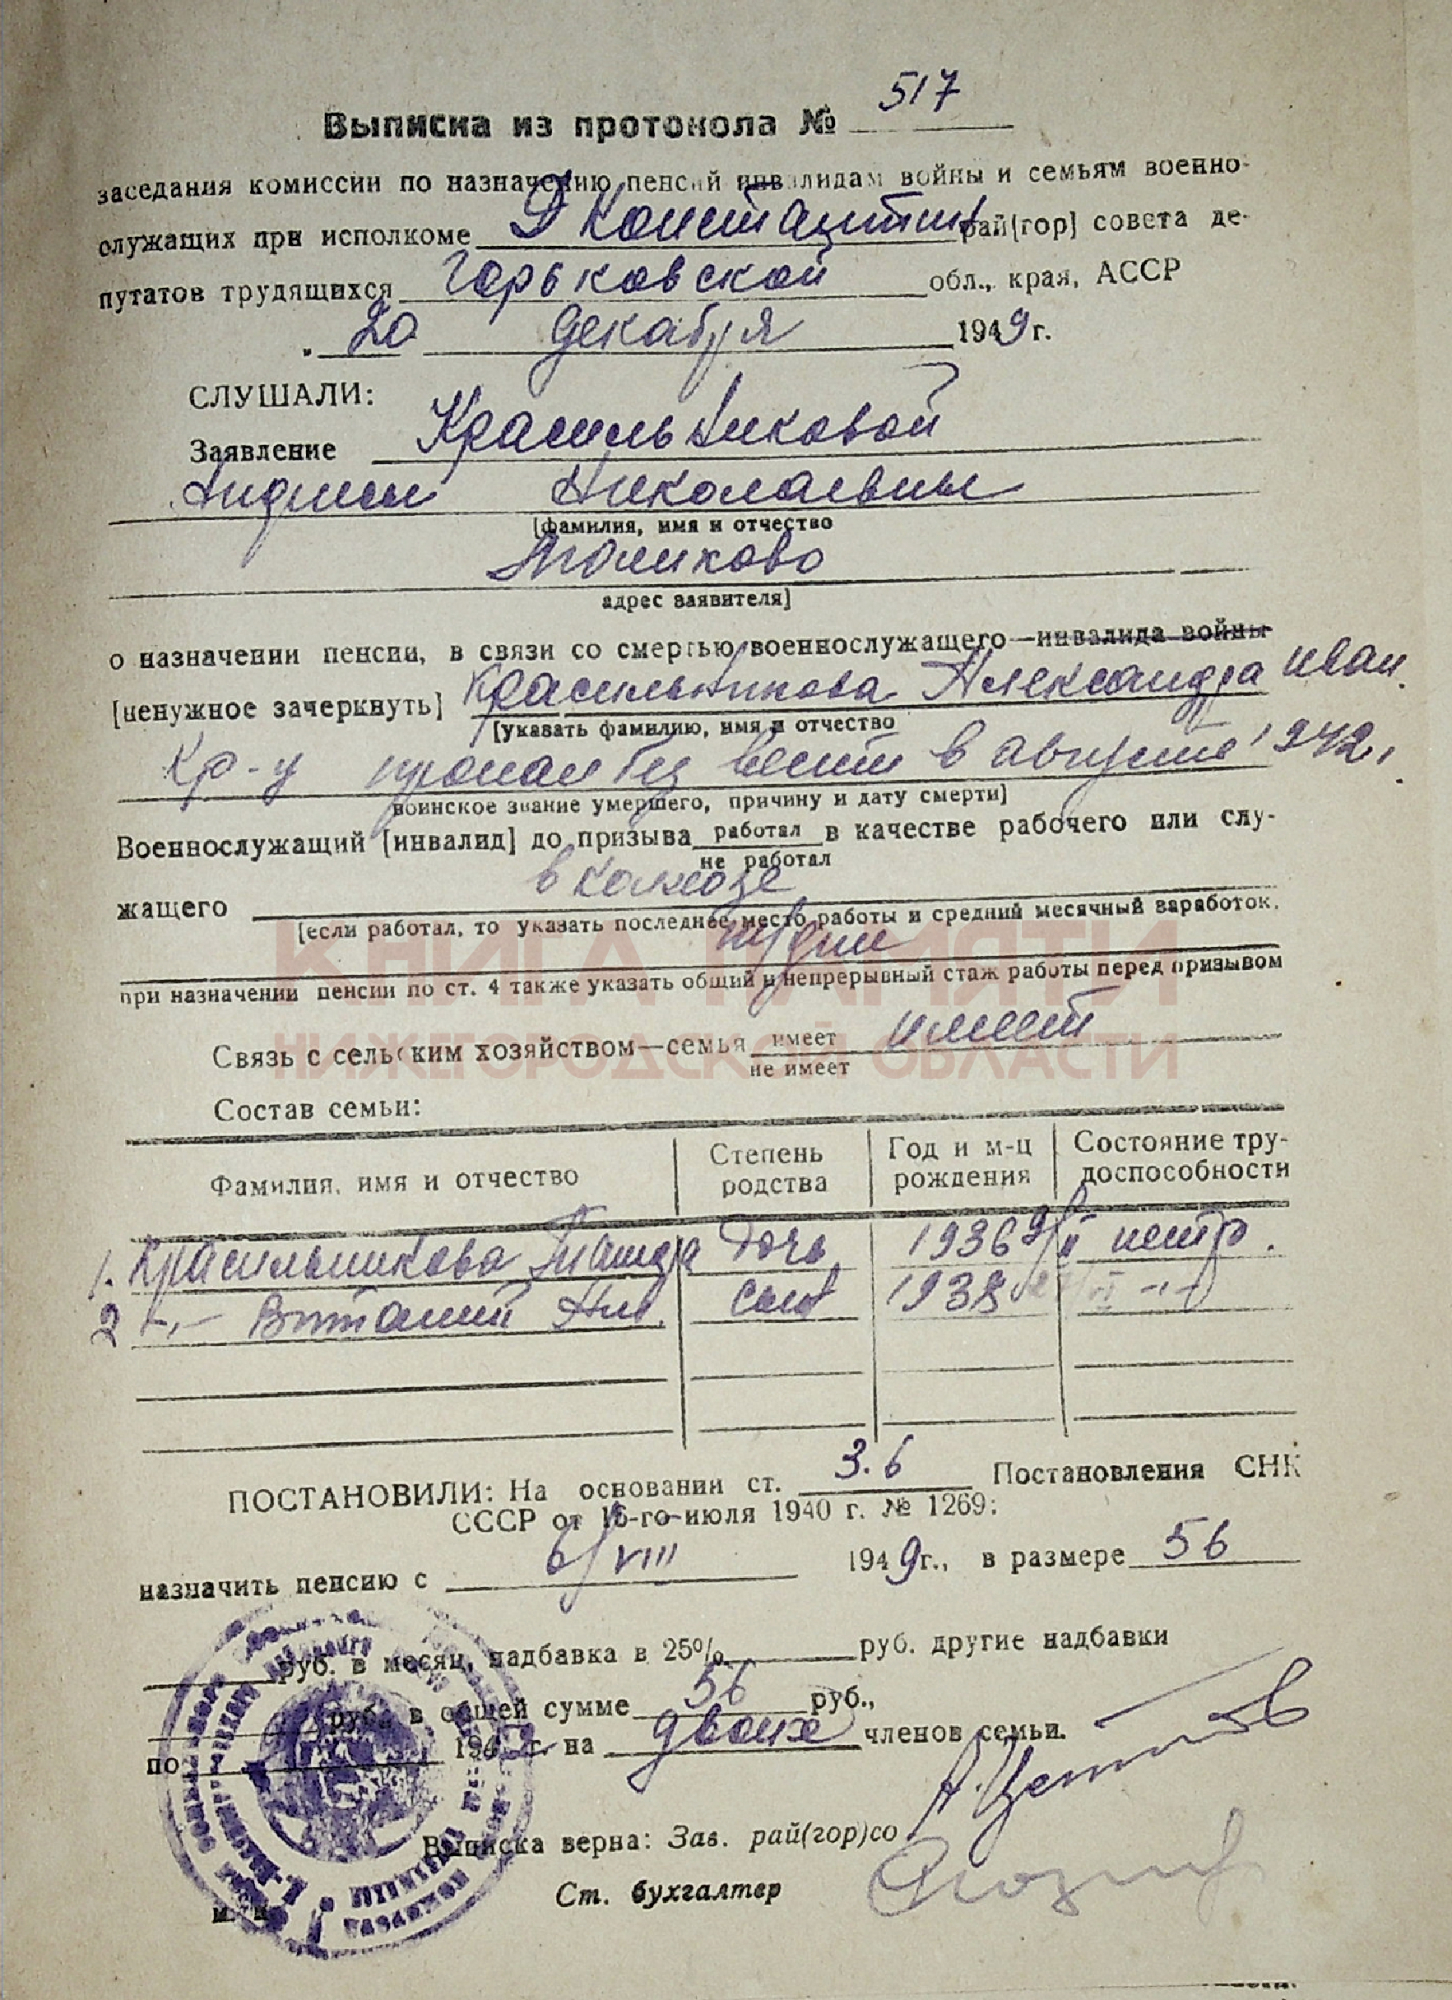 517
Выписка из протокола №
заседания комиссии по назначению пенсий инвалидам войны и семьям военно-
служащих при исполкоме Д Константин рай[гор] совета де-
путатов трудящихся Горьковской обл., края, АССР
„ 20 декабря 1949 г.
СЛУШАЛИ:
Заявление Красильниковой
Лидии Николаевны
[фамилия, имя и отчество
адрес заявителя]
о назначении пенсии, в связи со смертью военнослужащего—инвалида войны
[ненужное зачеркнуть] Красильникова Александра Иван.
[указать фамилию, имя и отчество
Кр-ц пропал без вести в августе 1942 г.
воинское звание умершего, причину и дату смерти]
Военнослужащий [инвалид] до призыва работал в качестве рабочего или слу-
не работал
жащего в колхозе
[если работал, то указать последнее место работы и средний месячный заработок,
при назначении пенсии по ст. 4 также указать общий и непрерывный стаж работы перед призывом
КНИГА ПАМЯТИ
НИЖЕГОРОДСКОЙ ОБЛАСТИ
Связь с сельским хозяйством—семья имеет имеет
не имеет
Состав семьи:
Фамилия, имя и отчество Степень родства Год и м-ц рождения Состояние тру-доспособности
1. Красильникова дочь 1936 нетр.
2 -"- Виталий Ал. сын 1938 -"-
ПОСТАНОВИЛИ: На основании ст. 3.6 Постановления СНК
СССР от 16-го июля 1940 г. № 1269:
назначить пенсию с 6/VIII 1949 г., в размере 56
руб. в месяц, надбавка в 25% руб. другие надбавки
руб., в общей сумме 56 руб.,
по 194 г. на двоих членов семьи.
Выписка верна: Зав. рай(гор)со
Ст. бухгалтер
м. п.